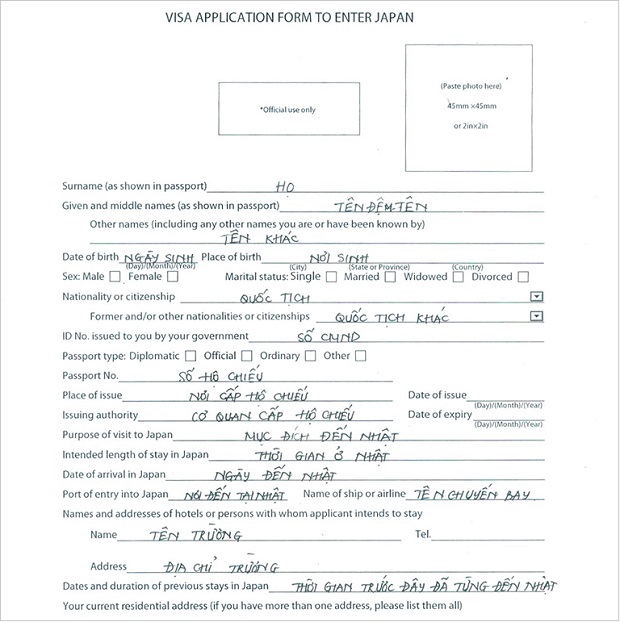 VISA APPLICATION FORM TO ENTER JAPAN
(Paste photo here)
45mm ×45mm
or 2in×2in
*Official use only
Surname (as shown in passport) HỌ
Given and middle names (as shown in passport) TÊN ĐỆM-TÊN
Other names (including any other names you are or have been known by)
TÊN KHÁC
Date of birth NGÀY SINH Place of birth NƠI SINH
(Day)/(Month)/(Year) (City) (State or Province) (Country)
Sex: Male Female Marital status: Single Married Widowed Divorced
Nationality or citizenship QUỐC TỊCH
Former and/or other nationalities or citizenships QUỐC TỊCH KHÁC
ID No. issued to you by your government SỐ CMND
Passport type: Diplomatic Official Ordinary Other
Passport No. SỐ HỘ CHIẾU
Place of issue NƠI CẤP HỘ CHIẾU Date of issue
(Day)/(Month)/(Year)
Issuing authority CƠ QUAN CẤP HỘ CHIẾU Date of expiry
(Day)/(Month)/(Year)
Purpose of visit to Japan MỤC ĐÍCH ĐẾN NHẬT
Intended length of stay in Japan THỜI GIAN Ở NHẬT
Date of arrival in Japan NGÀY ĐẾN NHẬT
Port of entry into Japan NƠI ĐẾN TẠI NHẬT Name of ship or airline TÊN CHUYẾN BAY
Names and addresses of hotels or persons with whom applicant intends to stay
Name TÊN TRƯỜNG Tel.
Address ĐỊA CHỈ TRƯỜNG
Dates and duration of previous stays in Japan THỜI GIAN TRƯỚC ĐÂY ĐÃ TỪNG ĐẾN NHẬT
Your current residential address (if you have more than one address, please list them all)